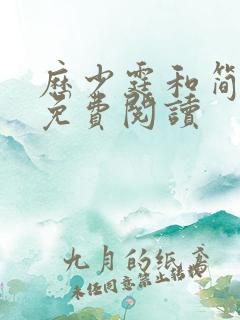 歷少霆和简
免費閱讀
九月的纸鸢
未经同意禁止转载